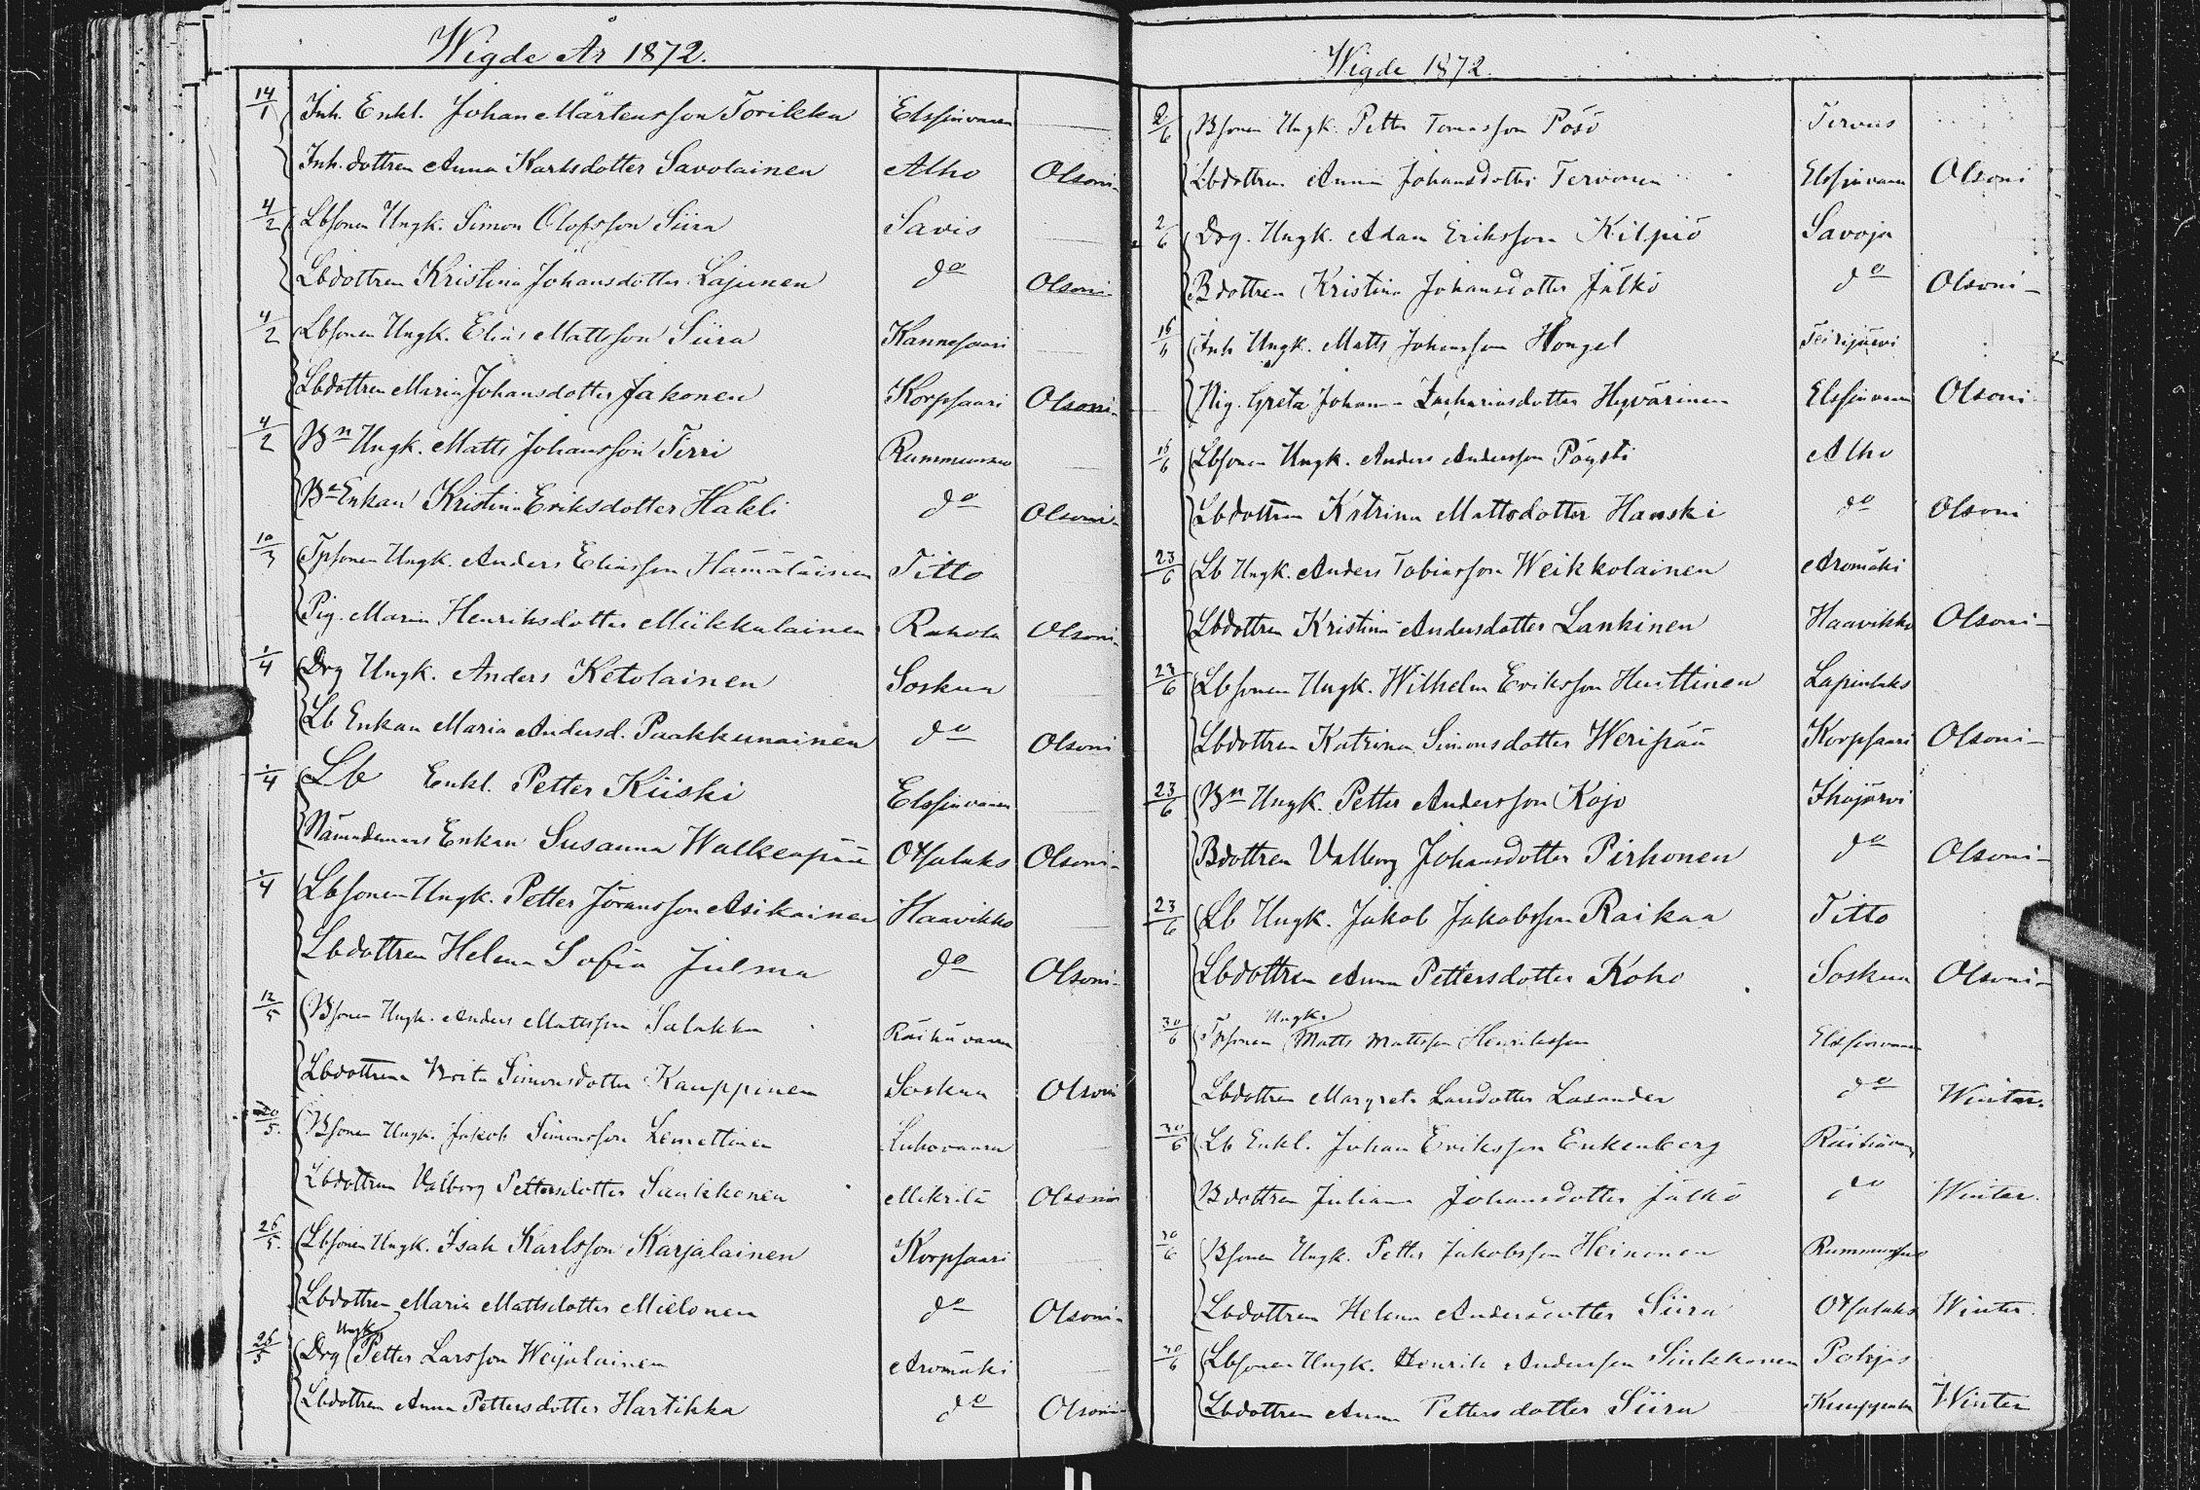 Wigde År 1872.
14/1 Inh. Enkl. Johan Mårtensson Torikka Elssinvaara
Inh. dottren Anna Karlsdotter Savolainen Alho Olsoni
4/2 Lbsonen Ungk. Simon Olofsson Siira Savis
Lbdottren Kristina Johansdotter Lajunen do Olsoni
4/2 Lbsonen Ungk. Elias Mattsson Siira Kannessaari
Lbdottren Maria Johansdotter Jakonen Korpsaari Olsoni
4/2 Bn Ungk. Matts Johansson Terri Rummunsuo
Be Enkan Kristina Eriksdotter Häkli do Olsoni
10/3 Tpsonen Ungk. Anders Eliasson Hämäläinen Titto
Pig. Maria Henriksdotter Miikkulainen Rahola Olsoni
1/4 Drg Ungk. Anders Ketolainen Soskua
Lb Enkan Maria Andersd. Paakkunainen do Olsoni
1/4 Lb Enkl. Petter Kiiski Elssinvaara
Nämndemans Enkan Susanna Walkeapää Otsalaks Olsoni
1/4 Lbsonen Ungk. Petter Jöransson Asikainen Haavikko
Lbdottren Helena Sofia Julma do Olsoni
12/5 Bsonen Ungk. Anders Mattsson Salakka Räihävaara
Lbdottren Brita Simonsdotter Kauppinen Soskua Olsoni
20/5. Bsonen Ungk. Jakob Simonsson Lemettinen Luhovaara
Lbdottren Valborg Pettersdotter Saukkonen Mikrilä Olsoni
26/5. Lbsonen Ungk. Isak Karlsson Karjalainen Korpsaari
Lbdottren Maria Mattsdotter Mielonen do Olsoni
26/5 Drg Ungk. Petter Larsson Weijalainen Aromäki
Lbdottren Anna Pettersdotter Hartikka do Olsoni
Wigde 1872.
2/6 Bsonen Ungk. Petter Tomasson Pösö Tervus
Lbdottren Anna Johansdotter Tervonen Elssinvaara Olsoni
2/6 Drg. Ungk. Adam Eriksson Kilpiö Savoja
Bdottren Kristina Johansdotter Jälkö do Olsoni
16/6 Inh Ungk. Matts Johansson Hongel Teirijärvi
Pig. Greta Johan Zachariasdotter Hyvärinen Elssinvaara Olsoni
16/6 Lbsonen Ungk. Anders Andersson Pöysti Alho
Lbdottren Katrina Mattsdotter Hanski do Olsoni
23/6 Lb Ungk. Anders Tobiasson Weikkolainen Aromäki
Lbdottren Kristina Andersdotter Lankinen Haavikko Olsoni
23/6 Lbsonen Ungk. Wilhelm Eriksson Huittinen Lapinlaks
Lbdottren Katrina Simonsdotter Weripää Korpsaari Olsoni
23/6 Bn Ungk. Petter Andersson Kojo Ihojärvi
Bdottren Valborg Johansdotter Pirhonen do Olsoni
23/6 Lb Ungk. Jakob Jakobsson Raikaa Titto
Lbdottren Anna Pettersdotter Koho Soskua Olsoni
30/6 Tpsonen Ungk. Matts Mattsson Henriksson Elissinvaara
Lbdottren Margreta Larsdotter Lasander do Winter.
30/6 Lb Enkl. Johan Eriksson Enkenberg Räihävaara
Bdottren Juliana Johansdotter Jälkö do Winter.
30/6 Bsonen Ungk. Petter Jakobsson Heinonen Rummunsuo
Lbdottren Helena Andersdotter Siira Otsalaks Winter
30/6 Lbsonen Ungk. Henrik Andersson Sinkkonen Pohjis
Lbdottren Anna Pettersdotter Siira Winter